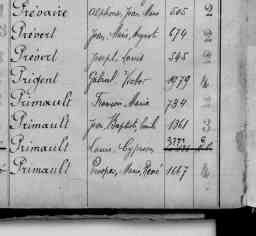 Prévaire Alphonse, Jean Marie 505 2
Prévert Jean, Marie, August 674 2
Prévert Joseph Louis 545 2
Prigent Gabriel Victor 1979 4
Primault François Marie 734 2
Primault Jean Baptiste, Emile 1361 3
Primault Louis, Cyprien 3777
Primault Marie, René 1667 4